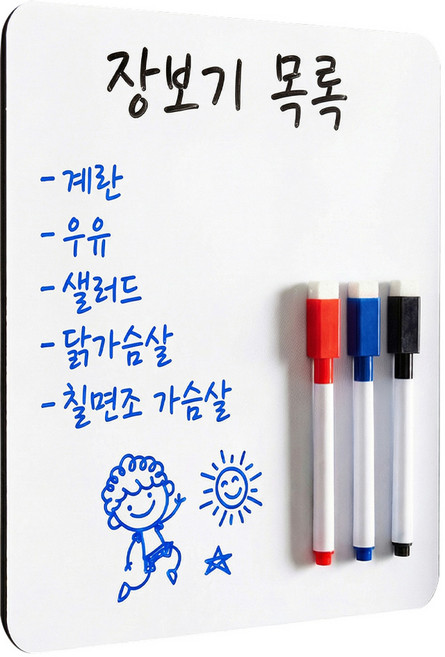 장보기 목록
- 계란
- 우유
- 샐러드
- 닭가슴살
- 칠면조 가슴살